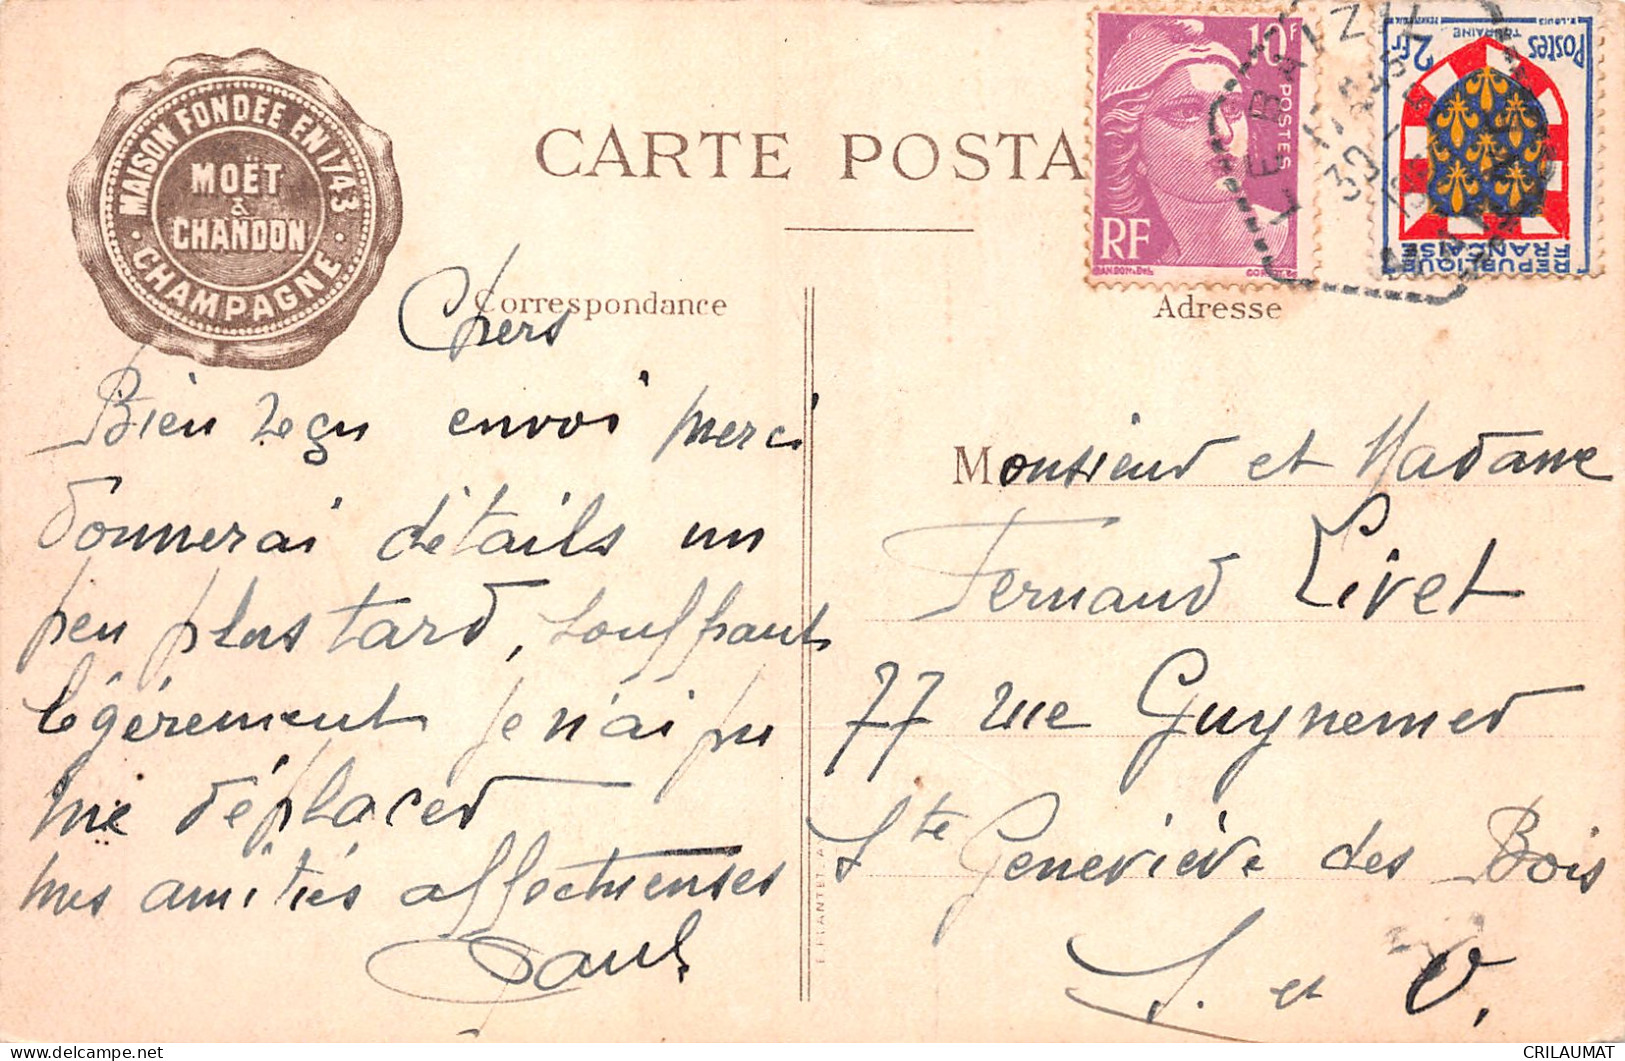 MAISON FONDEE EN 1743
MOËT
&
CHANDON
· CHAMPAGNE ·
CARTE POSTA
10F
POSTES
RF
2Fr
Postes
TOURAINE
REPUBLIQUE
FRANÇAISE
LE BAIZIL
30
MARNE
Correspondance
Adresse
Chers
Bien reçu envoi merci
donnerai détails un
peu plus tard, souffrant
légèrement je n'ai pu
me déplacer
mes amitiés affectueuses
Paul
Monsieur et Madame
Fernand Livet
77 rue Guynemer
Ste Geneviève des Bois
S. et O.
CRILAUMAT
the-postcard.delcampe.net